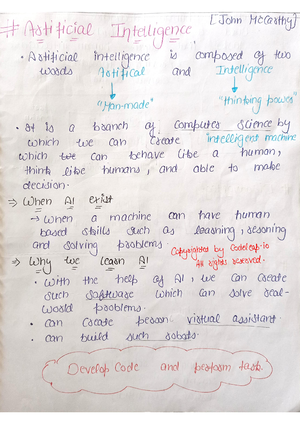 # Artificial Intelligence [John McCarthy]
• Artificial intelligence is composed of two
words Artifical and Intelligence
"Man-made" "thinking power"
• It is a branch of computer science by
which we can create intelligent machine
which can behave like a human,
think like humans, and able to make
decision.
⇒ When AI exist
→ When a machine can have human
based skills such as learning, resoning
and solving problems.
Copyrighted by CodeLeap.io
All rights reserved.
⇒ Why we learn AI
• With the help of AI, we can create
such software which can solve real-
world problems.
• can create person virtual assistant.
• can build such robots.
Develop Code and perform task.